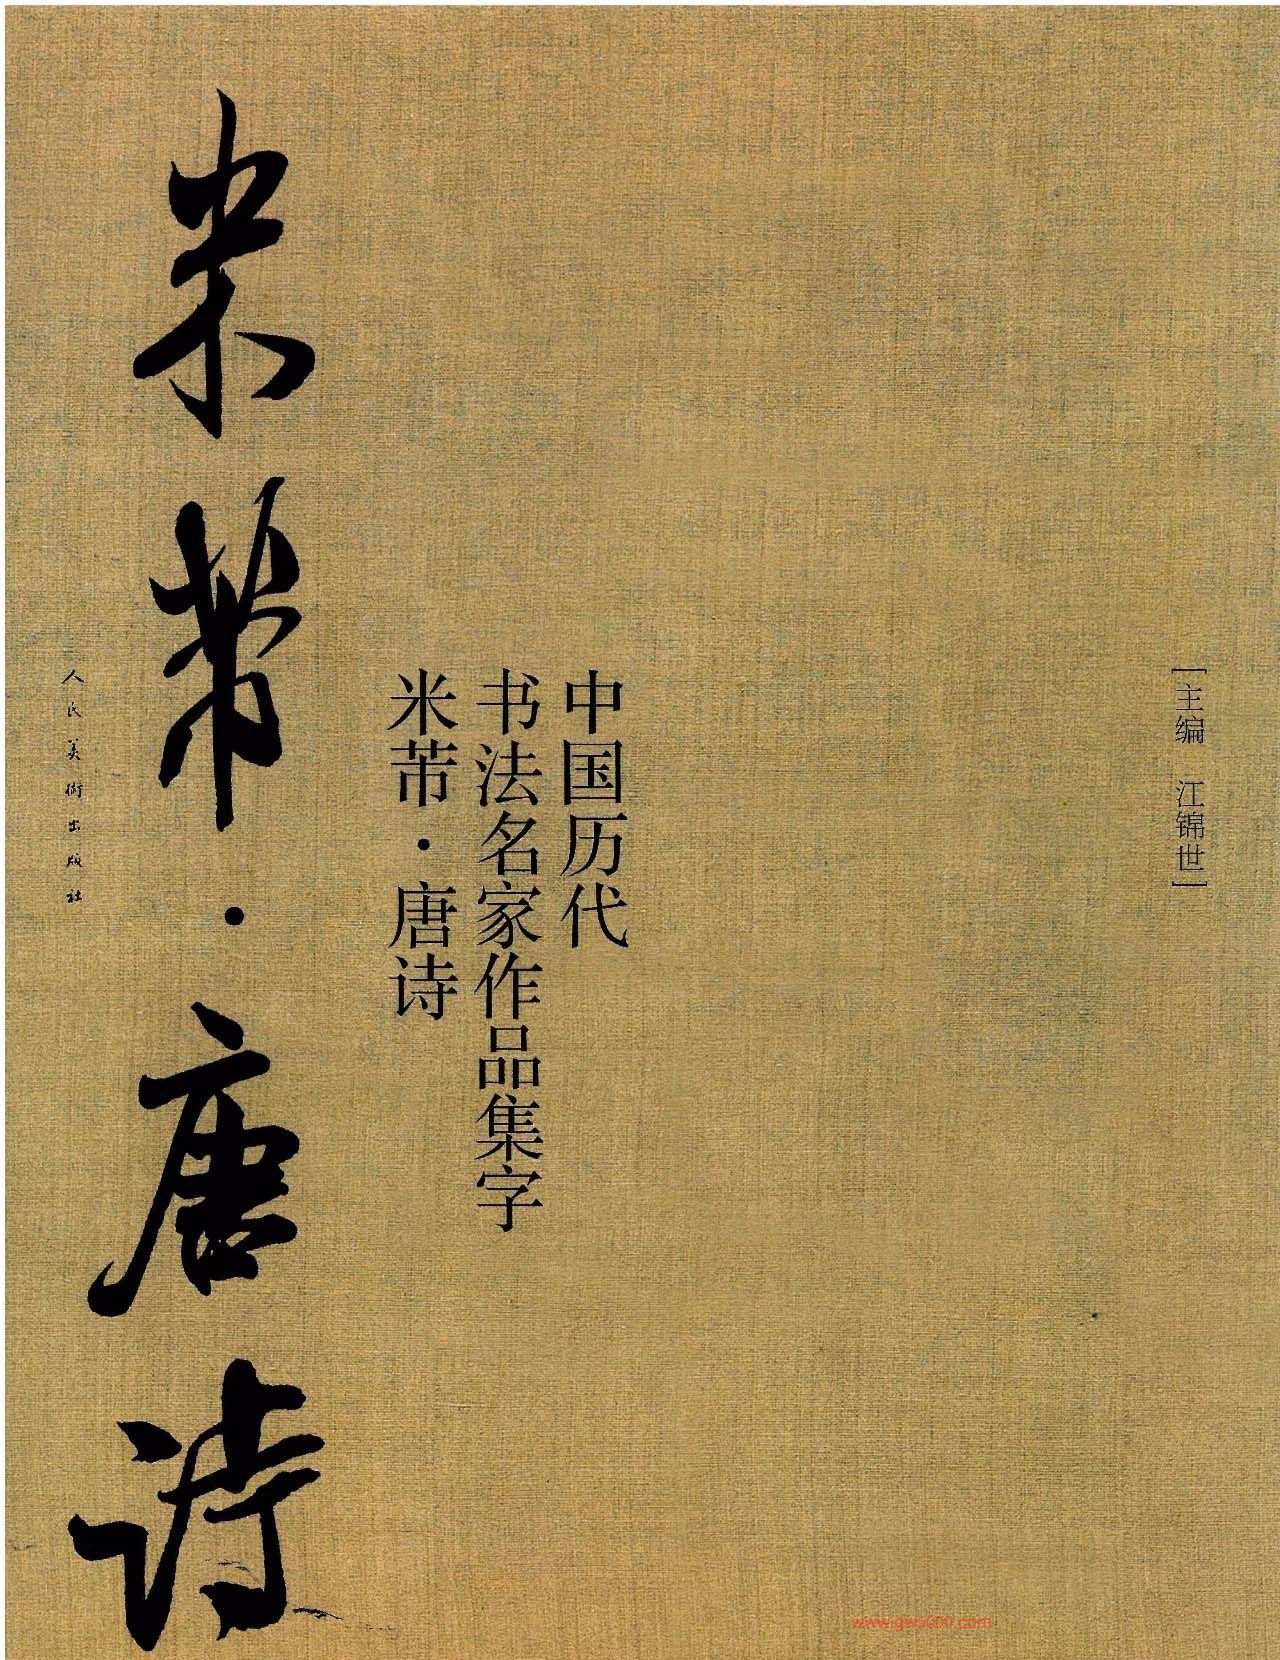 [主编 江锦世]
中国历代
书法名家作品集字
米芾·唐诗
米芾·唐诗
人民美術出版社
www.gw5600.com